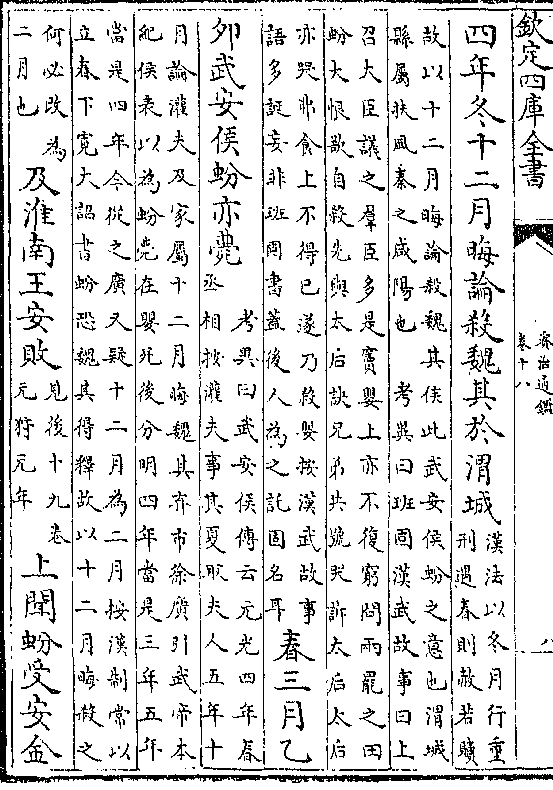 欽定四庫全書
資治通鑑
卷十八
八
四年冬十二月晦論殺魏其於渭城
漢法以冬月行重
刑遇春則赦若贖
故以十二月晦論殺魏其侯此武安侯蚡之意也渭城
縣屬扶風秦之咸陽也 考異曰班固漢武故事曰上
召大臣議之羣臣多是竇嬰上亦不復窮問兩罷之田
蚡大恨欲自殺先與太后訣兄弟共號哭訴太后太后
亦哭弗食上不得已遂乃殺嬰按漢武故事
語多誕妄非班固書蓋後人為之託固名耳
春三月乙
卯武安侯蚡亦薨
考異曰武安侯傳云元光四年春
丞相按灌夫事其夏取夫人五年十
月論灌夫及家屬十二月晦魏其弃市徐廣引武帝本
紀侯表以為蚡薨在嬰死後分明四年當是三年五年
當是四年今從之廣又疑十二月為二月按漢制常以
立春下寛大詔書蚡恐魏其得釋故以十二月晦殺之
何必改為
二月也
及淮南王安敗
見後十九卷
元狩元年
上聞蚡受安金